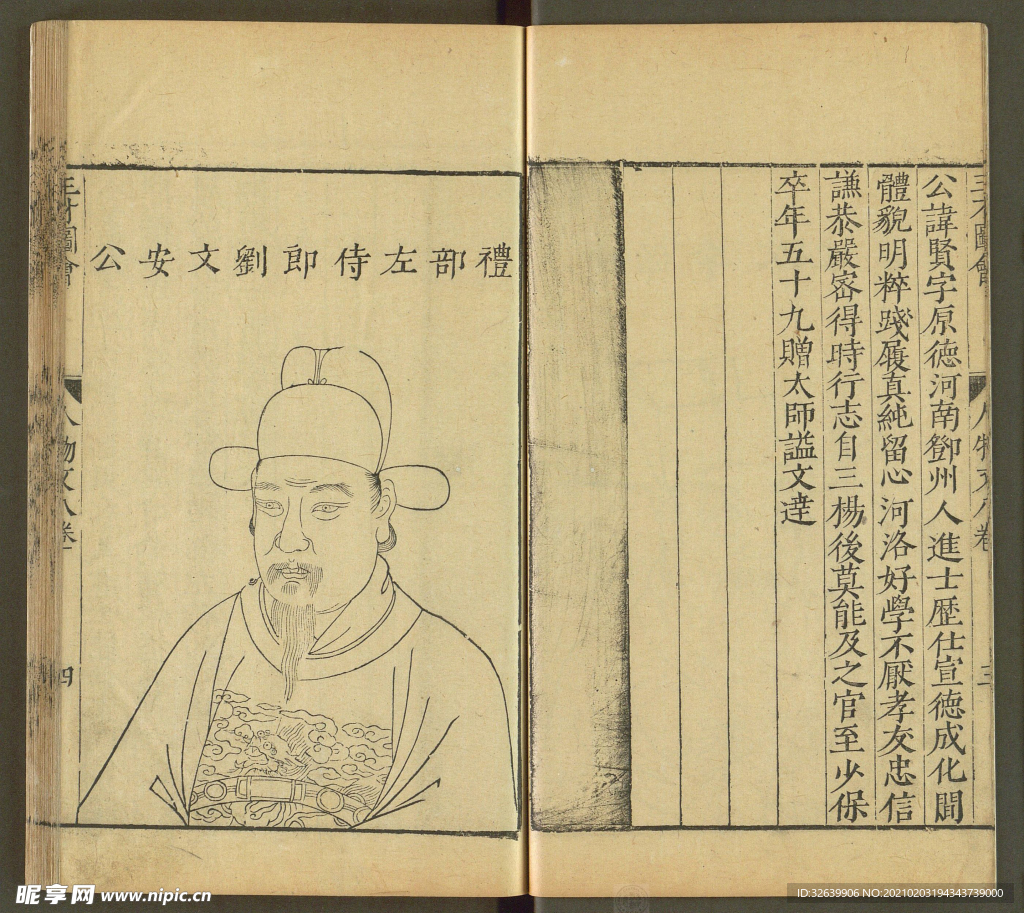 三才圖會
人物文八卷
三
公諱賢字原德河南鄧州人進士歷仕宣德成化間
體貌明粹踐履真純留心河洛好學不厭孝友忠信
謙恭嚴密得時行志自三楊後莫能及之官至少保
卒年五十九贈太師謚文達
禮部左侍郎劉文安公
三才圖會
人物文八卷
四
昵享网 www.nipic.cn
ID:32639906 NO:20210203194343739000